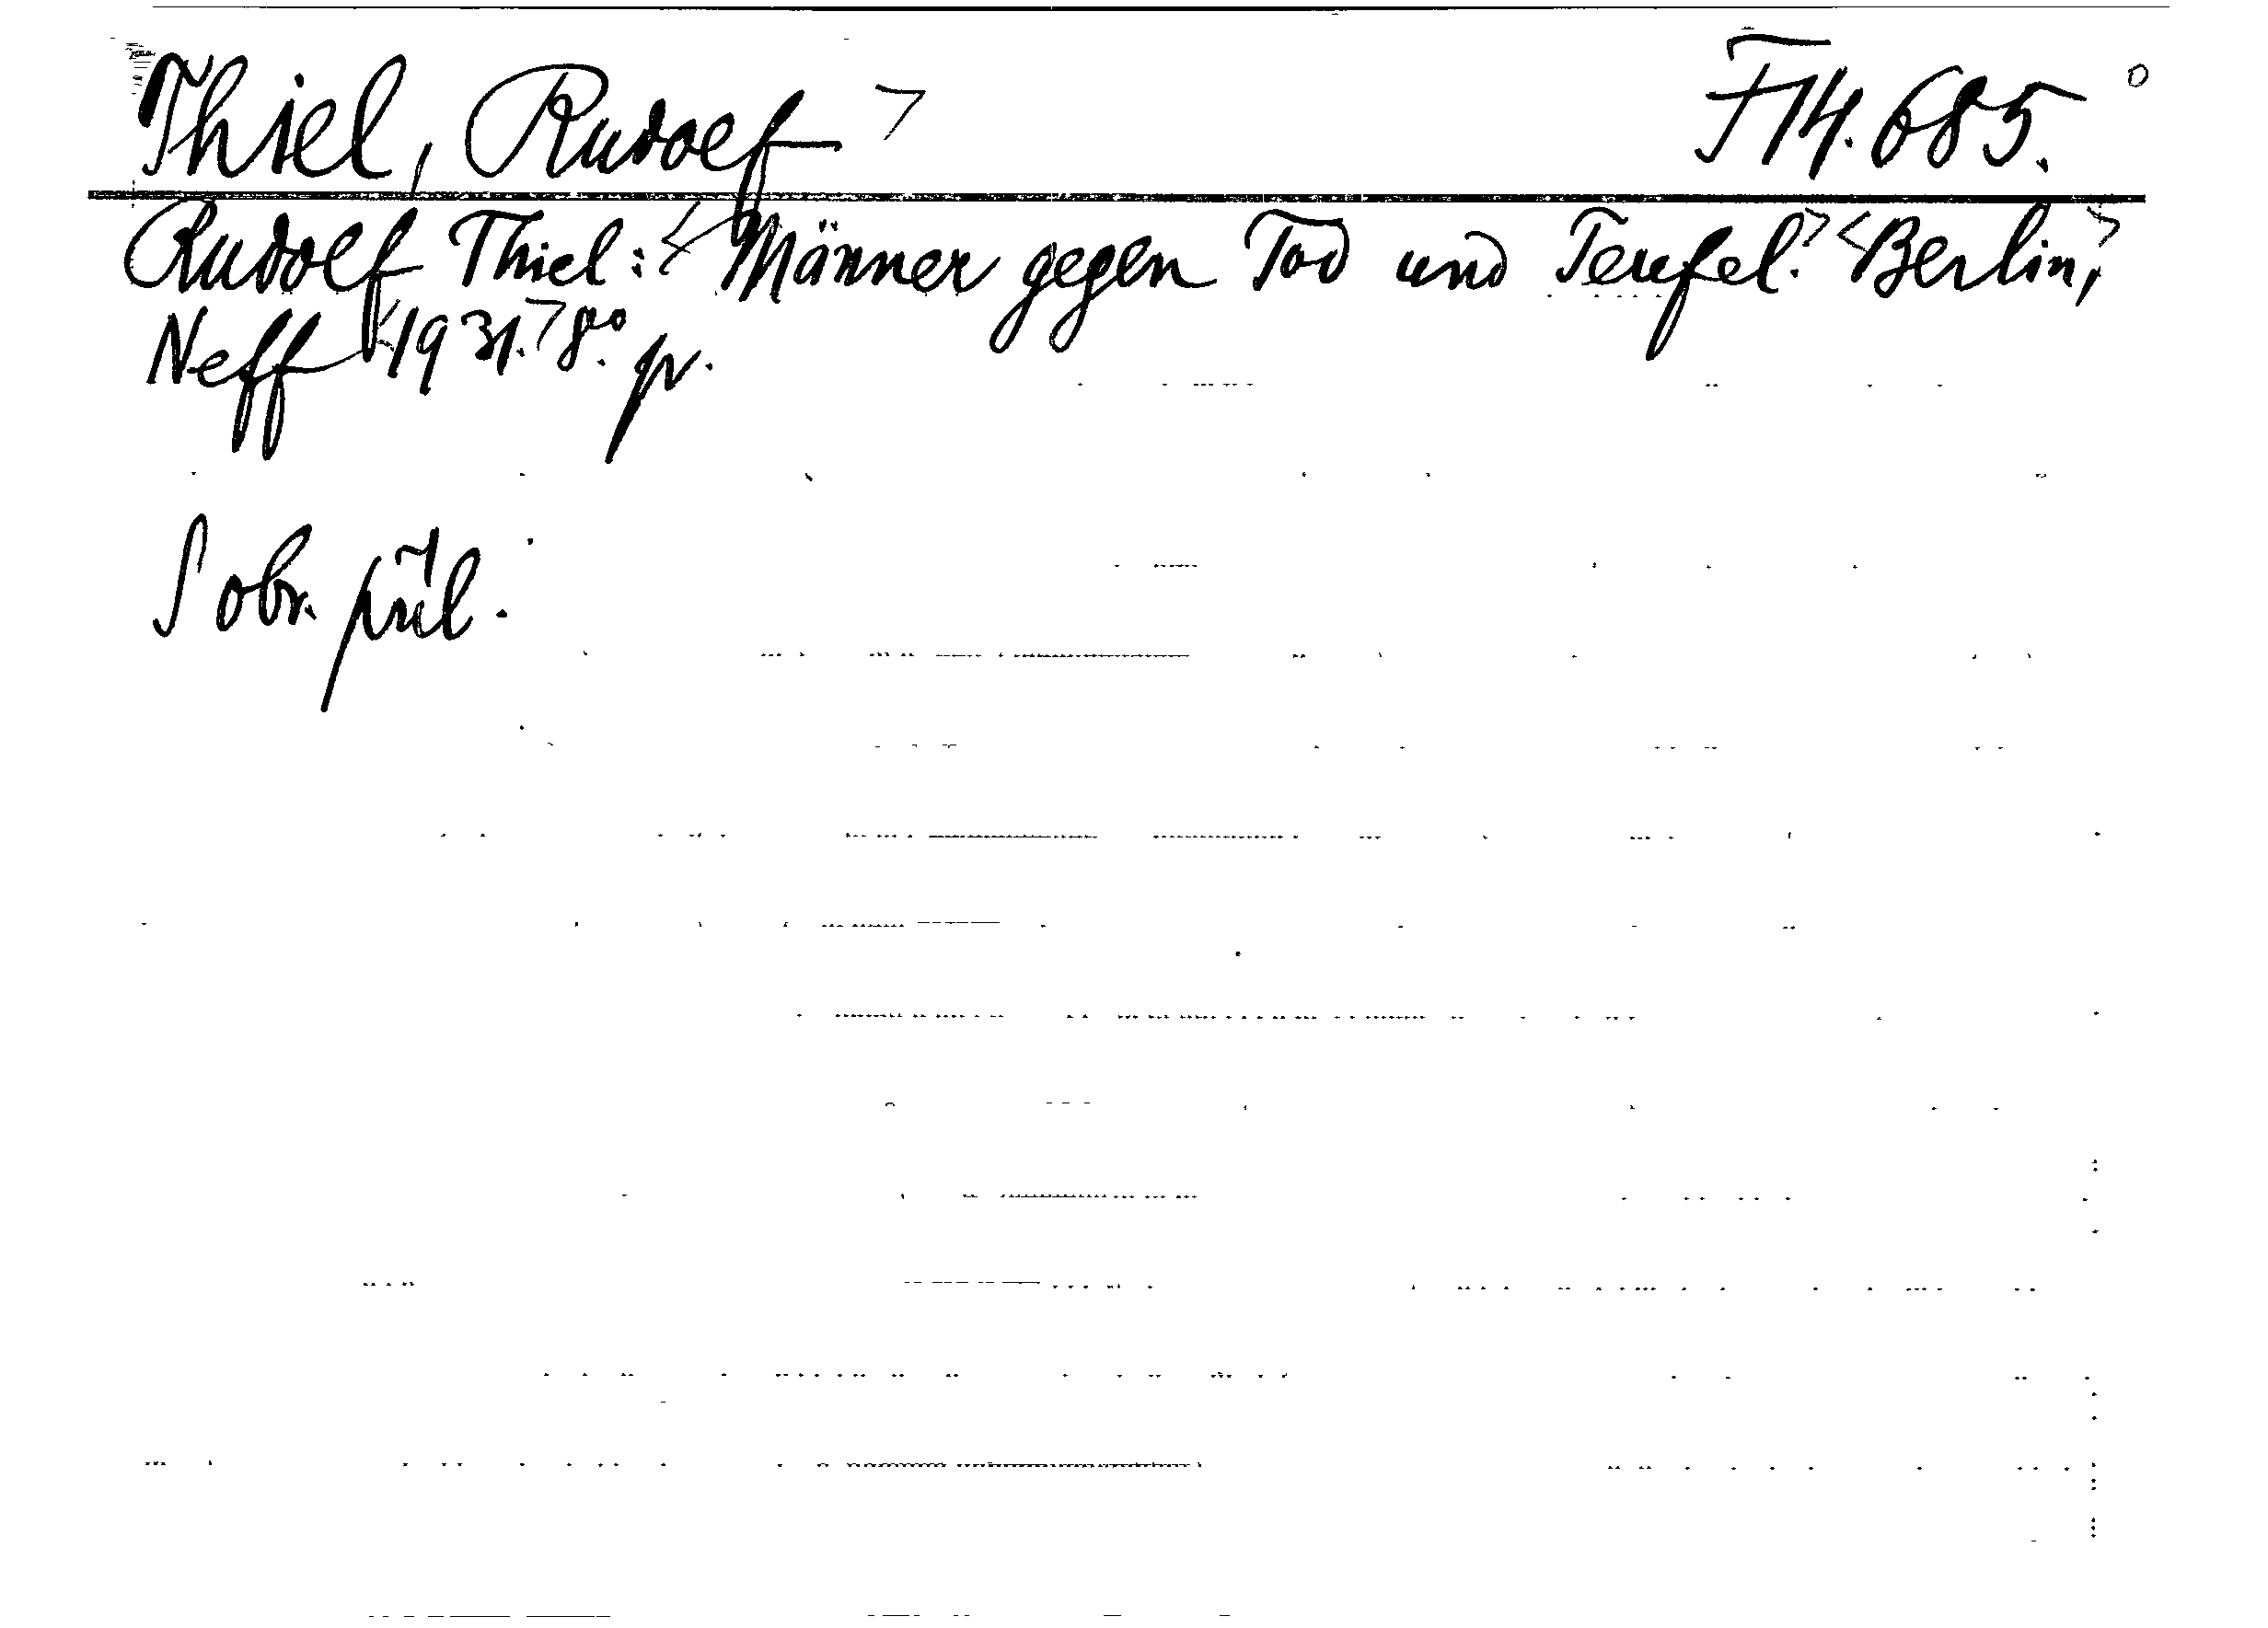 Thiel, Rudolf > F 14.685.
Rudolf Thiel: < Männer gegen Tod und Teufel. > < Berlin, >
Neff < 1931. > 8.° pv.
S obr. příl.